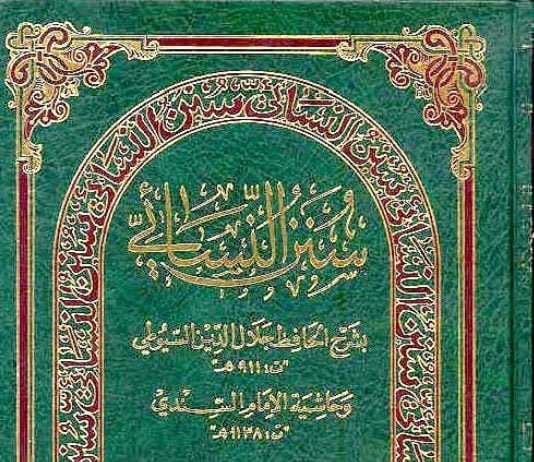 سنن النسائي سنن النسائي سنن النسائي سنن النسائي سنن النسائي
سُنَنُ النَّسَائِيِّ
بشرح الحافظ جلال الدين السيوطي
"ت: ٩١١ هـ"
وحاشية الإمام السندي
"ت: ١١٣٨ هـ"